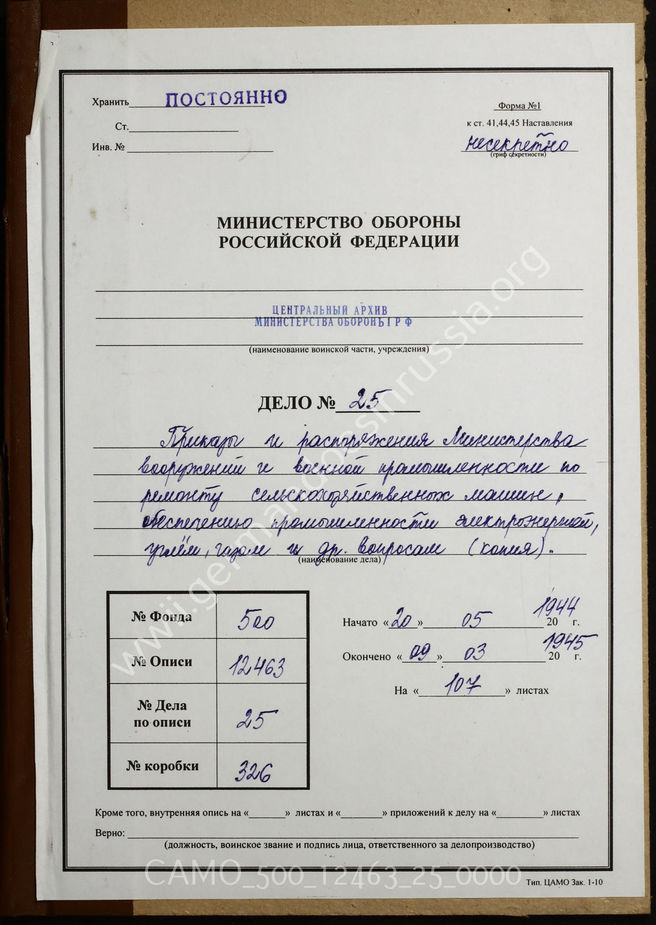 Хранить ПОСТОЯННО
Ст.
Инв. №
Форма №1
к ст. 41,44,45 Наставления
несекретно
(гриф секретности)
МИНИСТЕРСТВО ОБОРОНЫ
РОССИЙСКОЙ ФЕДЕРАЦИИ
ЦЕНТРАЛЬНЫЙ АРХИВ
МИНИСТЕРСТВА ОБОРОНЫ РФ
(наименование воинской части, учреждения)
ДЕЛО № 25
Приказы и распоряжения Министерства
вооружений и военной промышленности по
ремонту сельскохозяйственных машин,
обеспечению промышленности электроэнергией,
углём, газом и др. вопросам (копия).
(наименование дела)
№ Фонда 500
№ Описи 12463
№ Дела
по описи 25
№ коробки 326
Начато «20» 05 1944 20 г.
Окончено «09» 03 1945 20 г.
На «107» листах
Кроме того, внутренняя опись на « » листах и « » приложений к делу на « » листах
Верно:
(должность, воинское звание и подпись лица, ответственного за делопроизводство)
Тип. ЦАМО Зак. 1-10
www.germandocsinrussia.org
CAMO_500_12463_25_0000